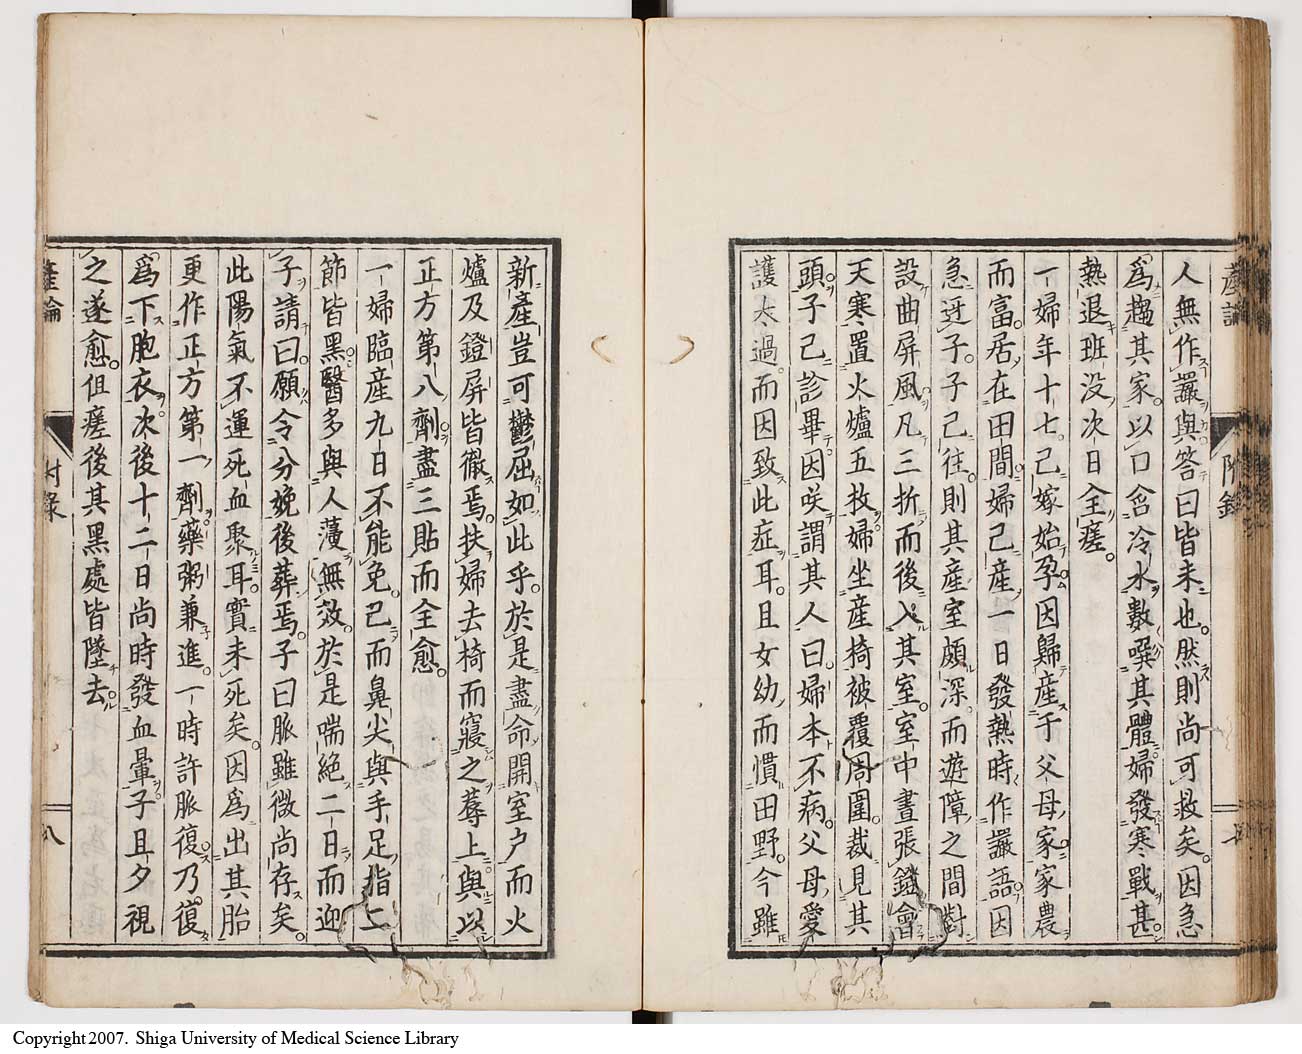 産論
附錄
七
人無作讝與答曰皆未也然則尚可救矣因急
爲趨其家以口含冷水數噀其體婦發寒戰甚
熱退班没次日全瘥
一婦年十七已嫁始孕因歸産于父母家家農
而富居在田間婦已産一日發熱時作讝語因
急迓子子已往則其産室頗深而遊障之間對
設曲屏風凡三折而後入其室室中晝張鐙會
天寒置火爐五枚婦坐産椅被覆周圍裁見其
頭子已診畢因咲謂其人曰婦本不病父母愛
護太過而因致此症耳且女幼而慣田野今雖
新産豈可鬱屈如此乎於是盡命開室戶而火
爐及鐙屏皆徹焉扶婦去椅而寢之蓐上與以
正方第八劑盡三貼而全愈
一婦臨産九日不能免已而鼻尖與手足指上
節皆黑醫多與人薓無效於是喘絶二日而迎
子請曰願令分娩後葬焉子曰脈雖微尚存矣
此陽氣不運死血聚耳實未死矣因爲出其胎
更作正方第一劑藥粥兼進一時許脈復乃復
爲下胞衣次後十二日尚時發血暈子且夕視
之遂愈但瘥後其黑處皆墜去
産論
附錄
八
Copyright 2007. Shiga University of Medical Science Library